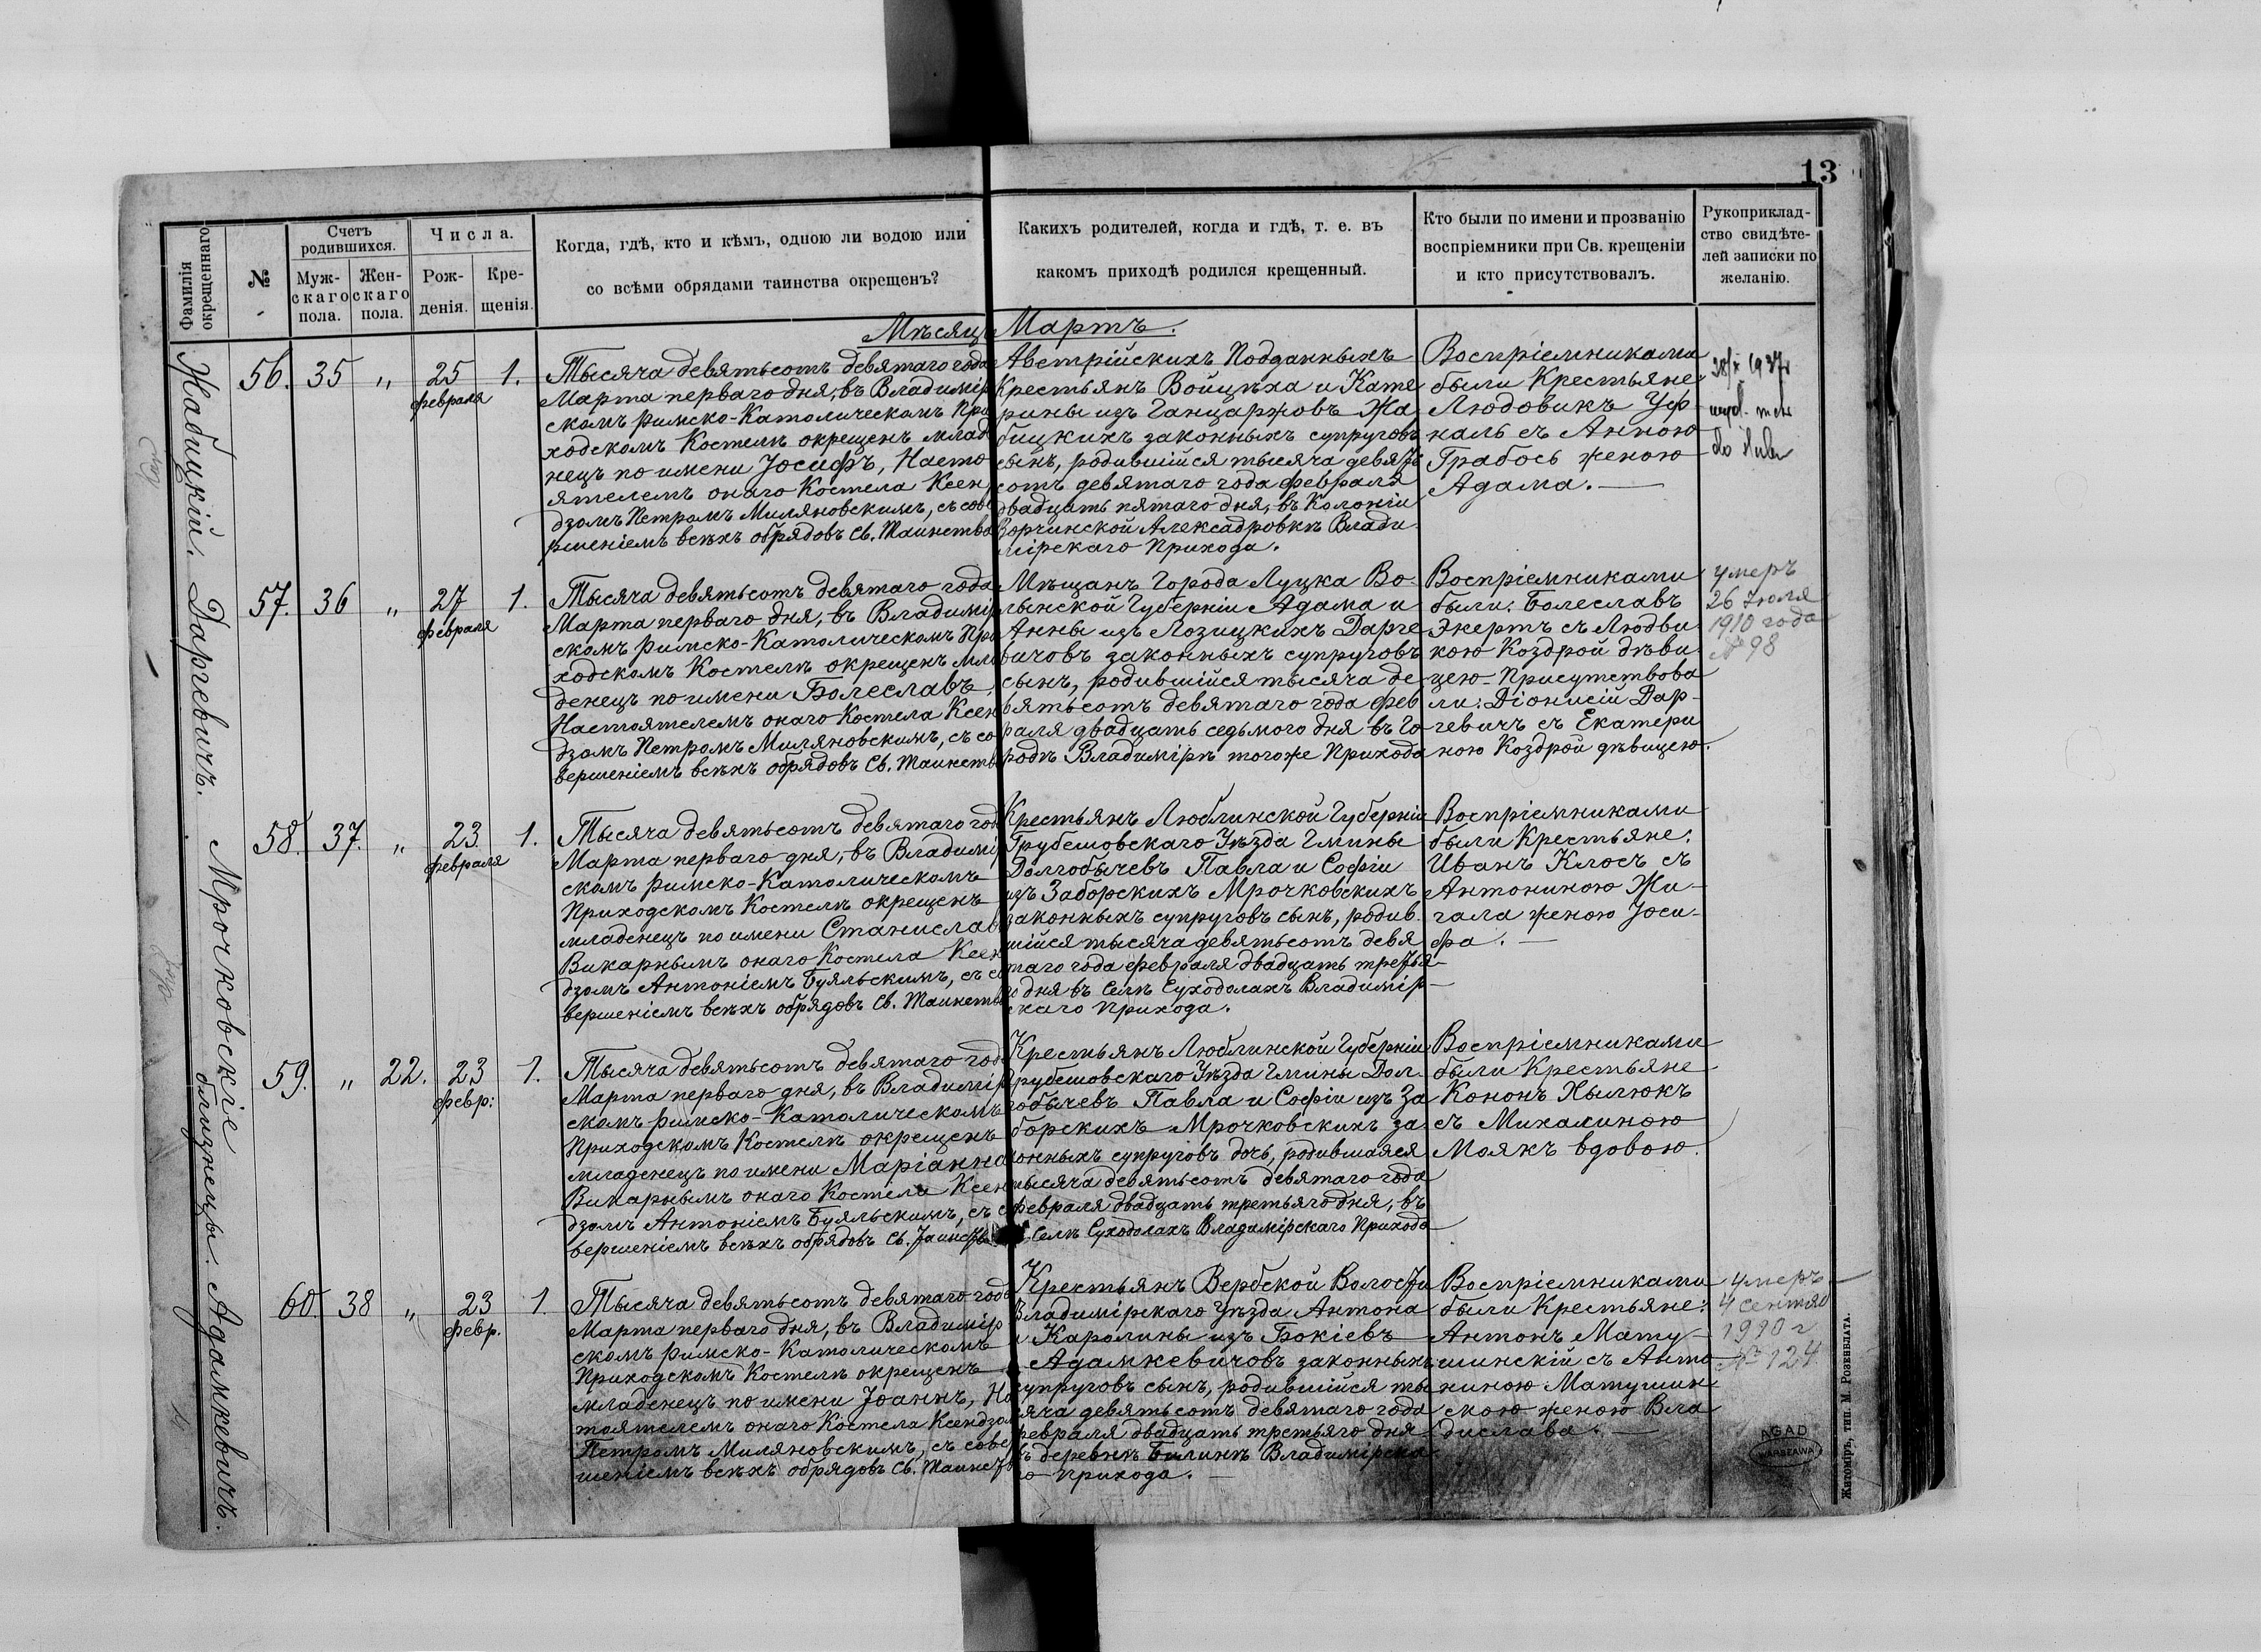 13
Фамилія окрещеннаго
№
Счетъ родившихся.
Мужскаго пола.
Женскаго пола.
Числа.
Рожденія.
Крещенія.
Когда, гдѣ, кто и кѣмъ, одною ли водою или
со всѣми обрядами таинства окрещенъ?
Какихъ родителей, когда и гдѣ, т. е. въ
какомъ приходѣ родился крещенный.
Кто были по имени и прозванію
воспріемники при Св. крещеніи
и кто присутствовалъ.
Рукоприклад-
ство свидѣте-
лей записки по
желанію.
Мѣсяцъ Мартъ.
Жабицкій.
56. 35 „ 25 февраля 1.
Тысяча девятьсотъ девятаго года
Марта перваго дня, въ Владимір
скомъ Римско-Католическомъ При
ходскомъ Костелѣ окрещенъ млад
нецъ по имени Іосифъ, Насто
ятелемъ онаго Костела Ксен
дзомъ Петромъ Миляновскимъ, съ сове
ршеніемъ всѣхъ обрядовъ Св. Таинства
Австрійскихъ Подданныхъ
Крестьянъ Войцѣха и Кате
рины изъ Ганцаржовъ Жа
бицкихъ законныхъ супруговъ
сынъ, родившійся тысяча девять
сотъ девятаго года февраля
двадцать пятаго дня, въ Колоніи
Ворчинской Алексадровкѣ Влади
мірскаго Прихода.
Воспріемниками
были Крестьяне
Людовикъ Уф
наль съ Анною
Грабось женою
Адама. —
1937
Даргевичъ.
57. 36 „ 27 февраля 1.
Тысяча девятьсотъ девятаго года
Марта перваго дня, въ Владимір
скомъ Римско-Католическомъ При
ходскомъ Костелѣ окрещенъ мла
денецъ по имени Болеславъ,
Настоятелемъ онаго Костела Ксен
дзомъ Петромъ Миляновскимъ, съ со
вершеніемъ всѣхъ обрядовъ Св. Таинств
Мѣщанъ Города Луцка Во-
лынской Губерніи Адама и
Анны изъ Лозицкихъ Дарге
вичовъ законныхъ супруговъ
сынъ, родившійся тысяча де-
вятьсотъ девятаго года фев
раля двадцать седьмого дня въ Го-
родѣ Владимірѣ тогоже Прихода
Воспріемниками
были: Болеславъ
Экертъ съ Людви
кою Коздрой дѣви
цею. Присутствова
ли: Діонисій Дар-
гевичъ съ Екатери
ною Коздрой дѣвицею.
Умеръ
26 Іюля
1910 года
№ 98
Мрочковскіе близнецы.
58. 37. „ 23 февраля 1.
Тысяча девятьсотъ девятаго год
Марта перваго дня, въ Владимі
скомъ Римско-Католическомъ
Приходскомъ Костелѣ окрещенъ
младенецъ по имени Станислав
Викарнымъ онаго Костела Ксен
дзомъ Антоніемъ Буяльскимъ, съ со
вершеніемъ всѣхъ обрядовъ Св. Таинств
Крестьянъ Люблинской Губерніи
Грубешовскаго Уѣзда Гмины
Долгобычевъ Павла и Софіи
изъ Заборскихъ Мрочковскихъ
законныхъ супруговъ сынъ, родив
шійся тысяча девятьсотъ девя
таго года февраля двадцать третья-
го дня въ Селѣ Суходолахъ Владимір-
скаго Прихода.
Воспріемниками
были Крестьяне:
Иванъ Клосъ съ
Антониною Жи-
гала женою Іоси-
фа. —
59. „ 22. 23 февр: 1.
Тысяча девятьсотъ девятаго год
Марта перваго дня, въ Владимір
скомъ Римско-Католическомъ
Приходскомъ Костелѣ окрещенъ
младенецъ по имени Маріанна
Викарнымъ онаго Костела Ксен
дзомъ Антоніемъ Буяльскимъ, съ с
вершеніемъ всѣхъ обрядовъ Св. Таинств
Крестьянъ Люблинской Губерніи
Грубешовскаго Уѣзда Гмины Дол-
гобычевъ Павла и Софіи изъ За
борскихъ Мрочковскихъ за
конныхъ супруговъ дочь, родившаяся
тысяча девятьсотъ девятаго года
февраля двадцать третьяго дня, въ
Селѣ Суходолахъ Владимірскаго Прихода
Воспріемниками
были Крестьяне
Кононъ Хылюкъ
съ Михалиною
Моякъ вдовою.
Адамкевичъ.
60. 38 „ 23 февр. 1.
Тысяча девятьсотъ девятаго года
Марта перваго дня, въ Владимір
скомъ Римско-Католическомъ
Приходскомъ Костелѣ окрещенъ
младенецъ по имени Іоаннъ, На
тоятелемъ онаго Костела Ксендзом
Петромъ Миляновскимъ, съ совер
шеніемъ всѣхъ обрядовъ Св. Таинств
Крестьянъ Вербской Волости
Владимірскаго Уѣзда Антона
и Каролины изъ Бокіевъ
Адамкевичовъ законныхъ
супруговъ сынъ, родившійся ты
сяча девятьсотъ девятаго года
февраля двадцать третьяго дня
въ деревнѣ Билинѣ Владимірска
го Прихода. —
Воспріемниками
были Крестьяне:
Антонъ Мату-
шинскій съ Анто
ниною Матушин
скою женою Вла
дислава. —
Умеръ
4 сентяб
1910 г
№ 124
AGAD
WARSZAWA
Житоміръ, тип. М. Розенблата.